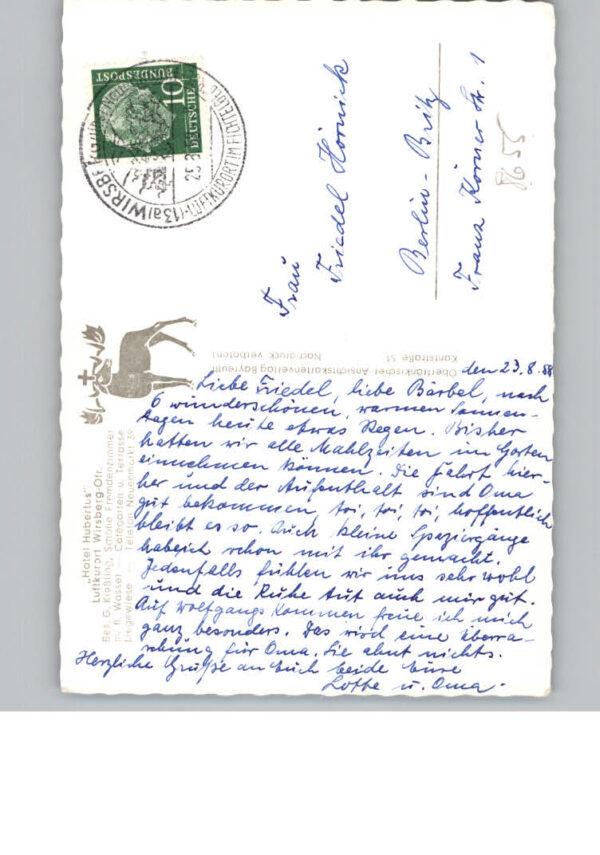 BUNDESPOST
10
DEUTSCHE
(13a) WIRSBERG
LUFTKURORT IM FICHTELGEB
Frau
Friedel Hornick
Berlin-Britz
Franz Körner Str. 1
8655
Oberfränkischer Ansichtskartenverlag Bayreuth
Kantstraße 51
Nachdruck verboten!
„Hotel Hubertus"
Luftkurort Wirsberg-Ofr.
Bes. G. Kießling, Schöne Fremdenzimmer
m. fl. Wasser — Cafégarten u. Terrasse
Liegewiese — Telefon Neuenmarkt 39
den 23.8.58
Liebe Friedel, liebe Bärbel, nach
6 wunderschönen, warmen Sonnen-
tagen heute etwas Regen. Bisher
hatten wir alle Mahlzeiten im Garten
einnehmen können. Die Fahrt hier-
her und der Aufenthalt sind Oma
gut bekommen, toi, toi, toi, hoffentlich
bleibt es so. Auch kleine Spaziergänge
habe ich schon mit ihr gemacht.
Jedenfalls fühlen wir uns sehr wohl
und die Ruhe tut auch mir gut.
Auf Wolfgangs Kommen freue ich mich
ganz besonders. Das wird eine Überra-
schung für Oma. Sie ahnt nichts.
Herzliche Grüße an Euch beide Eure
Lotte u. Oma.